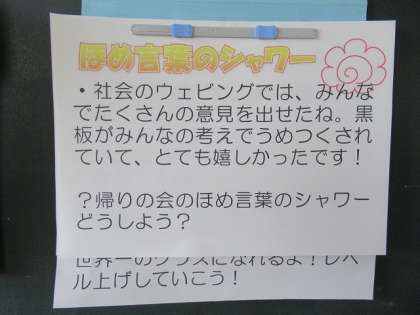 ほめ言葉のシャワー
・社会のウェビングでは、みんな
でたくさんの意見を出せたね。黒
板がみんなの考えでうめつくされ
ていて、とても嬉しかったです！
？帰りの会のほめ言葉のシャワー
どうしよう？
世界一のクラスになれるよ！レベ
ル上げしていこう！